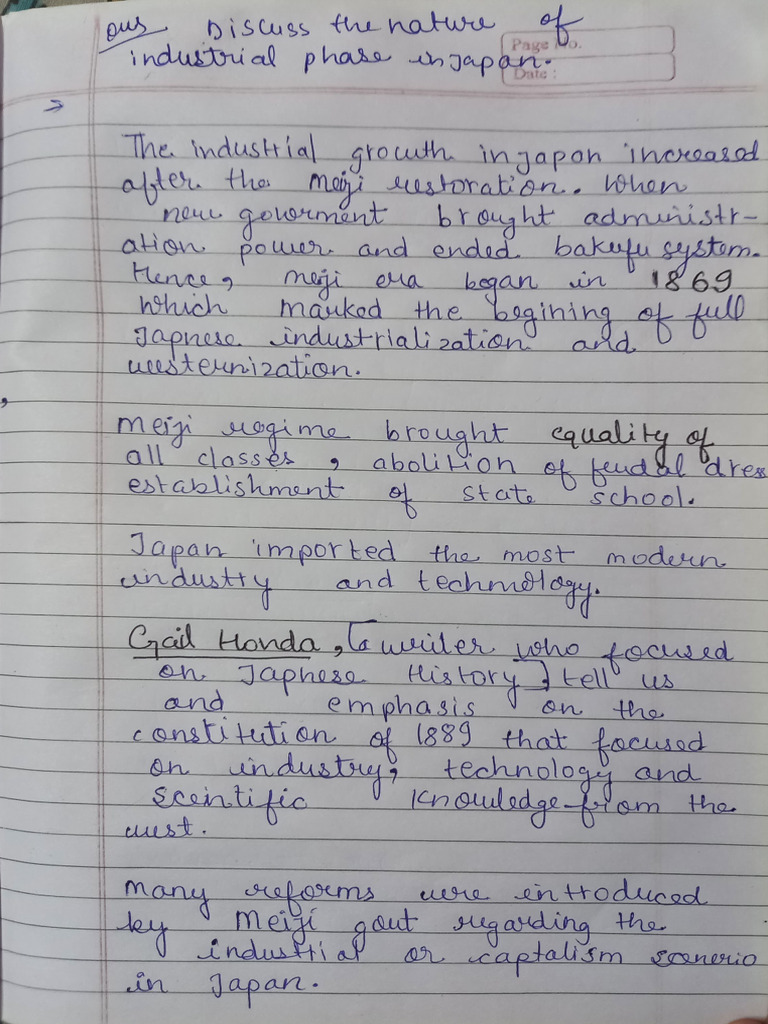 Ques Discuss the nature of
industrial phase in Japan.
Page No.
Date :
→
The industrial growth in Japan increased
after the Meiji restoration. When
new goverment brought administr-
ation power and ended bakufu system.
Hence, meiji era began in 1869
which marked the begining of full
Japnese industrialization and
westernization.
Meiji regime brought equality of
all classes, abolition of feudal dress
establishment of state school.
Japan imported the most modern
industry and technology.
Gail Honda, [a writer who focused
on Japnese History] tell us
and emphasis on the
constitution of 1889 that focused
on industry, technology and
sceintific knowledge from the
west.
Many reforms were introduced
by Meiji govt regarding the
industrial or captalism scenerio
in Japan.